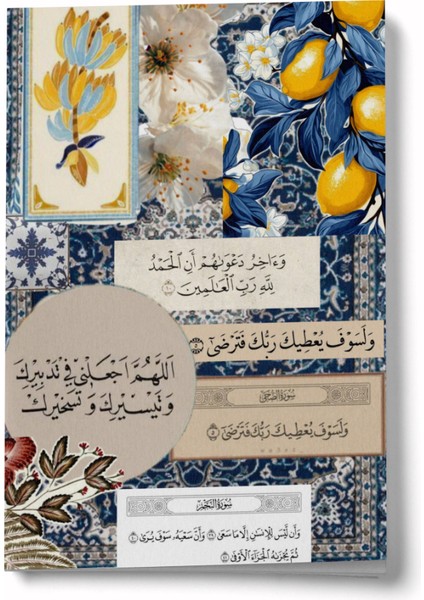 وَءَاخِرُ دَعْوَىٰهُمْ أَنِ ٱلْحَمْدُ
لِلَّهِ رَبِّ ٱلْعَٰلَمِينَ ١٠
وَلَسَوْفَ يُعْطِيكَ رَبُّكَ فَتَرْضَىٰٓ ٥
اَللَّهُمَّ اجْعَلْنِي فِي تَدْبِيرِكَ
وَتَيْسِيرِكَ وَتَسْخِيرِكَ
سُورَةُ الضُّحَىٰ
وَلَسَوْفَ يُعْطِيكَ رَبُّكَ فَتَرْضَىٰٓ ٥
سُورَةُ النَّجْمِ
وَأَن لَّيْسَ لِلْإِنسَٰنِ إِلَّا مَا سَعَىٰ ٣٩ وَأَنَّ سَعْيَهُۥ سَوْفَ يُرَىٰ ٤٠
ثُمَّ يُجْزَىٰهُ ٱلْجَزَآءَ ٱلْأَوْفَىٰ ٤١